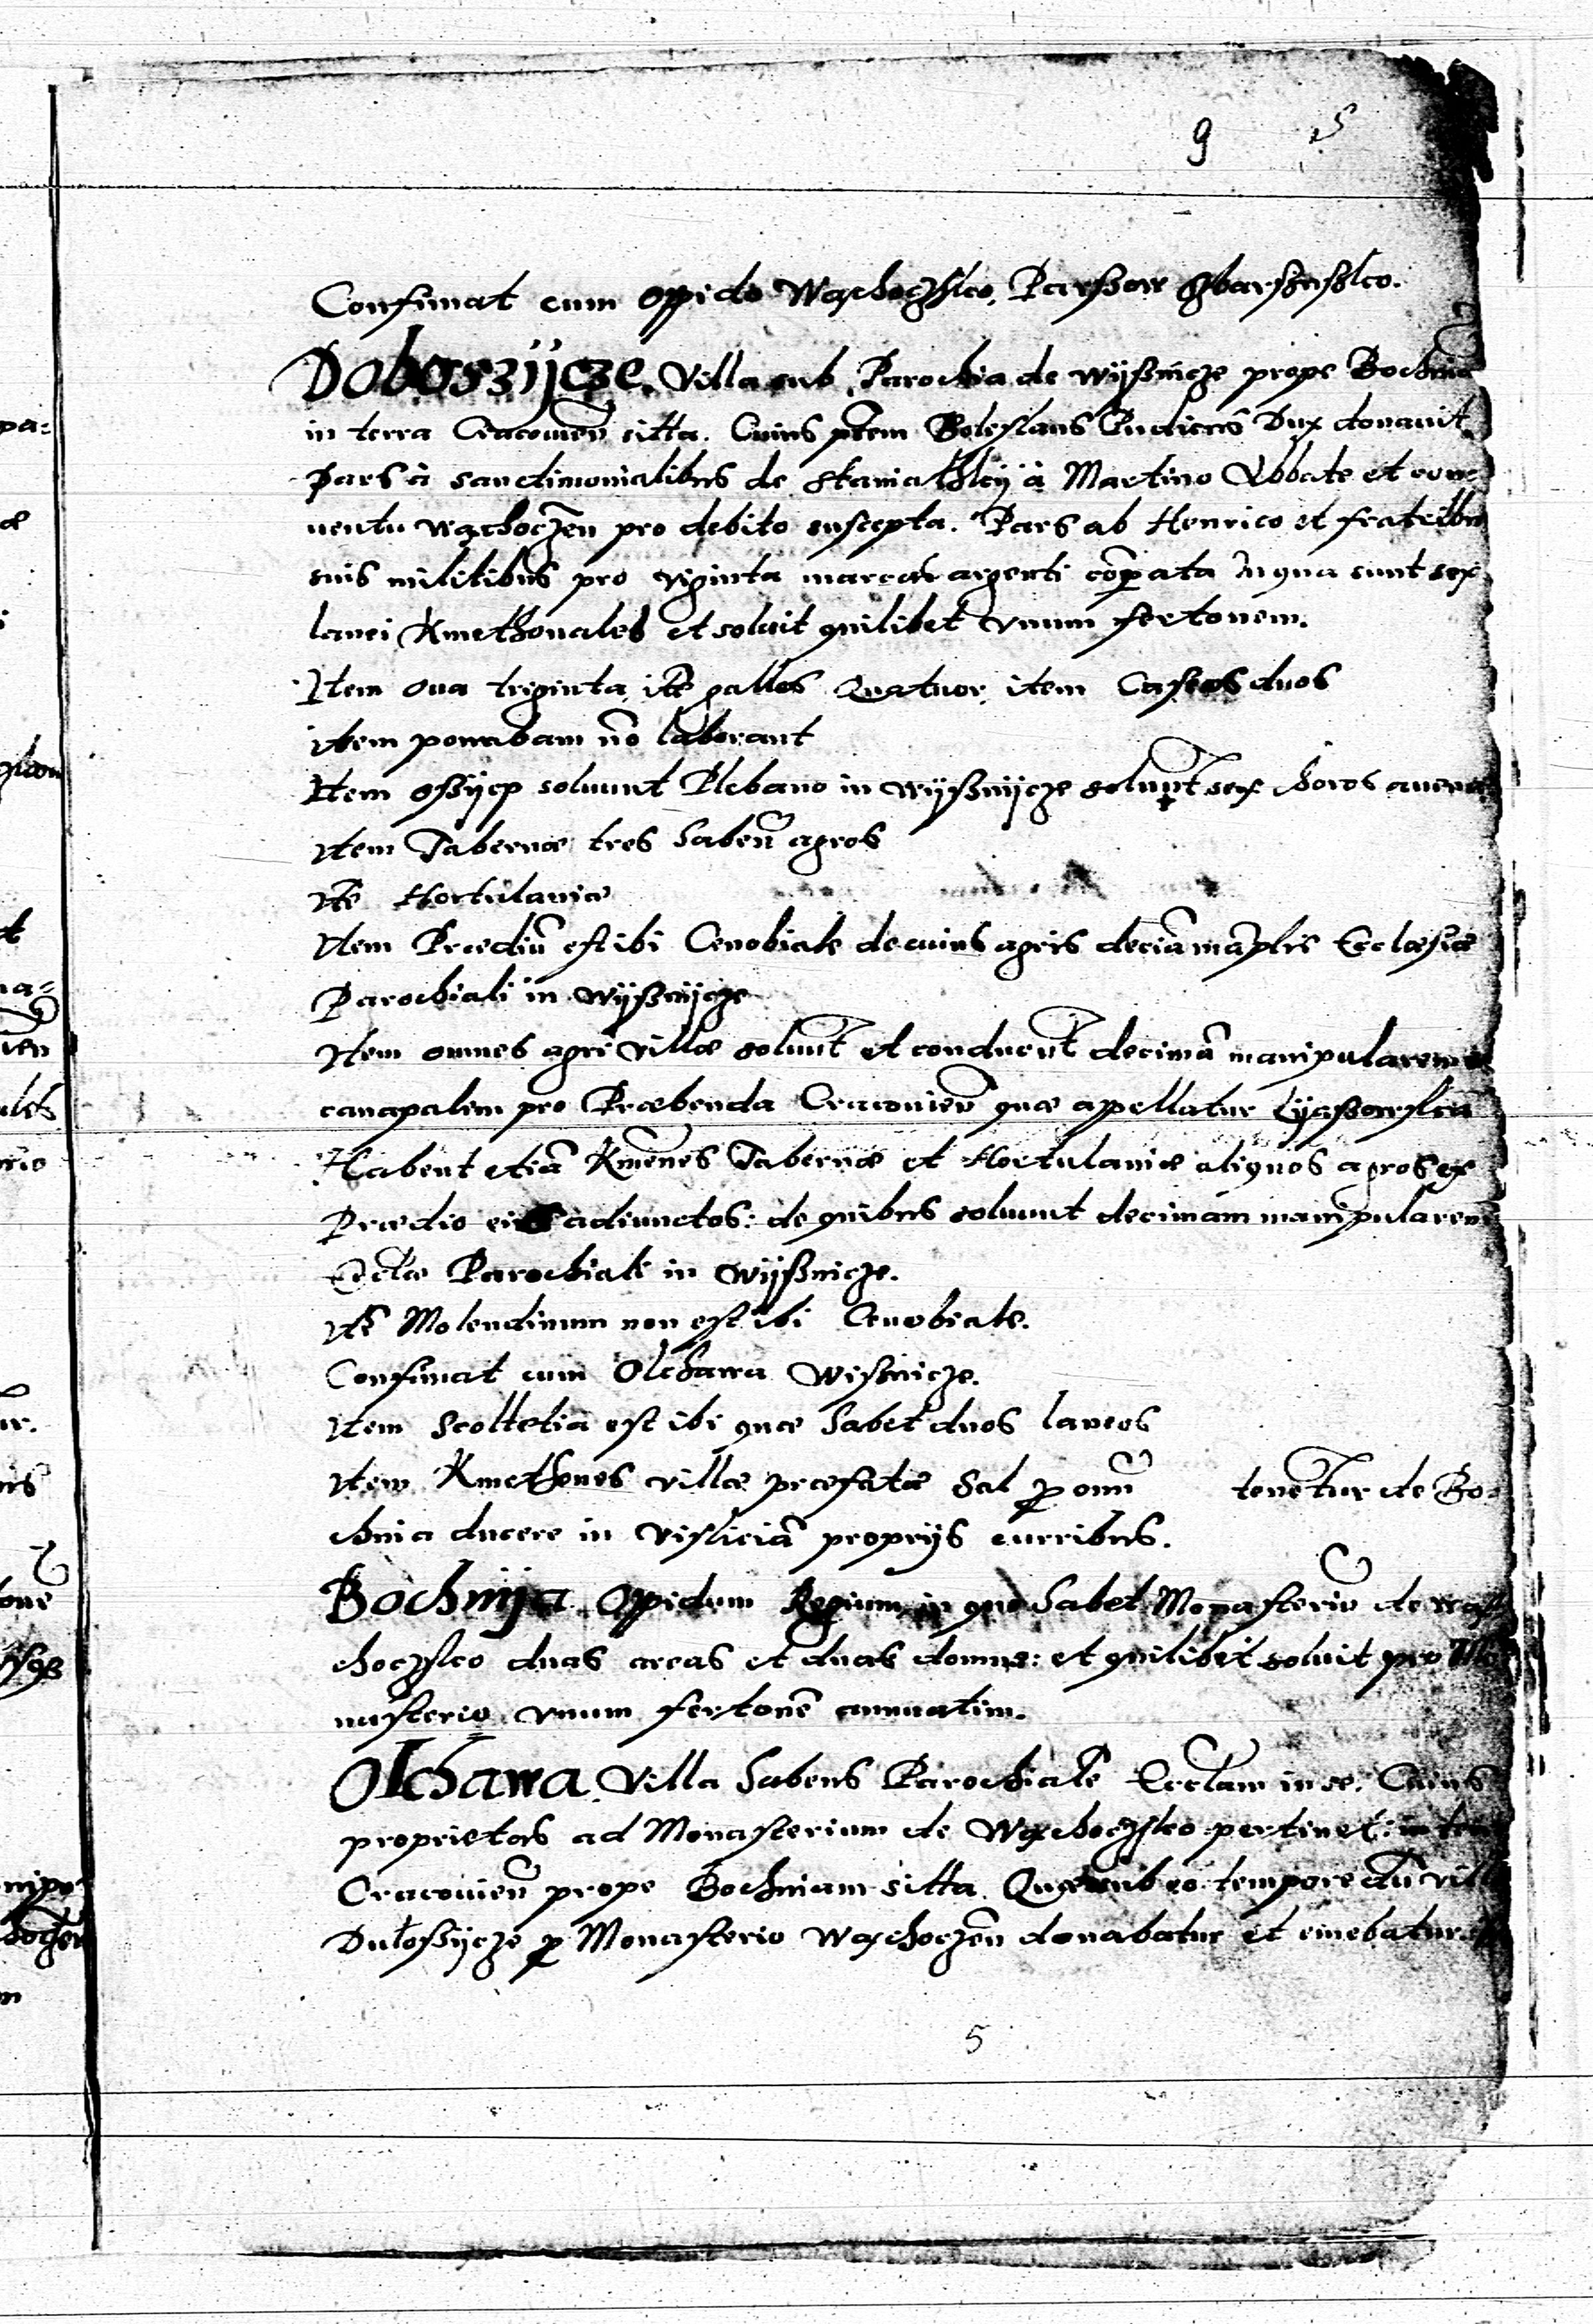 9 5
Confinat cum oppido Wąchoczsko, Parszow
Doboszijcze. Villa sub Parochia de Wijsznicze prope Bochniā
in terra Cracovieñ sitta. Cuius ptem Boleslaus Pudicus Dux donavit.
Pars à sanctimonialibus de Staniathky à Martino Abbate et con-
uentu Wąchoczeñ pro debito suscepta. Pars ab Henrico et fratribus
suis militibus pro viginta marcas argenti cõparata In qua sunt sex
lanei Kmethonales et soluit quilibet vnum fertonem.
Item oua triginta, itē gallos Quatuor, item Caseos duos
item powabam nō laborant
Item ossijep soluunt Plebano in Wijsznijcze soluūt sex choros avenae
Item Tabernæ tres habeñ agros
Itē Hortulaniæ
Item Prædiū est ibi Cenobiale de cuius agris deciā māplis Ecclæsiæ
Parochiali in Wijsznijcze
Item omnes agri Villæ soluūt et conducūt decimā manipularem
canapalem pro Præbenda Cracovieñ quæ appellatur
Habent etiā Kmēnes Tabernæ et Hortulaniæ aliquos agros ex
Prædio eis adiunctos: de quibus soluunt decimam manipularem
Ecclæ Parochiali in Wijsznicze.
Itē Molendinum non est ibi Cenobiale.
Confinat cum Olchawa Wisznicze.
Item Scoltetia est ibi quæ habet duos laneos
Item Kmethones villæ præfatæ Sal p omñ tenētur de Bo-
chnia ducere in Visliciā proprijs curribus.
Bochnija Oppidum Regium in quo habet Monasteriū de Wą-
choczsko duas areas et duas domus: et quilibet soluit pro Mo
nasterio vnum fertonē annuatim.
Olchawa Villa habens Parochialē Ecclam in se. Cuius
proprietas ad Monasterium de Wąchoczsko pertinet: in terra
Cracovieñ prope Bochniam sitta. Quæ sub eo tempore dū villa
Dułoszijcze p Monasterio Wąchoczeñ donabatur et emebatur
5